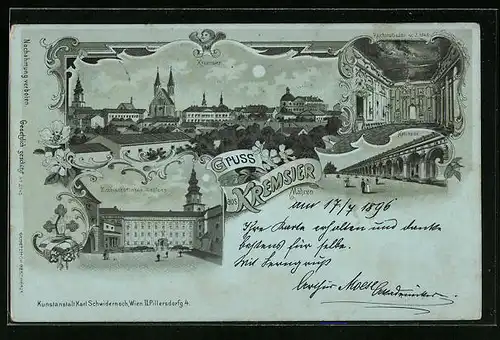 Kremsier
Reichstagssaal v. J. 1848
Kolonade
Erzbischöfliches Schloss
GRUSS
aus
KREMSIER
Mähren
am 17/7 1896
Ihre Karte erhalten und danke
bestens für selbe.
Mit
Nachahmung verboten
Gesetzlich geschützt
Kunstanstalt Karl Schwidernoch, Wien II. Pillersdorfg. 4.